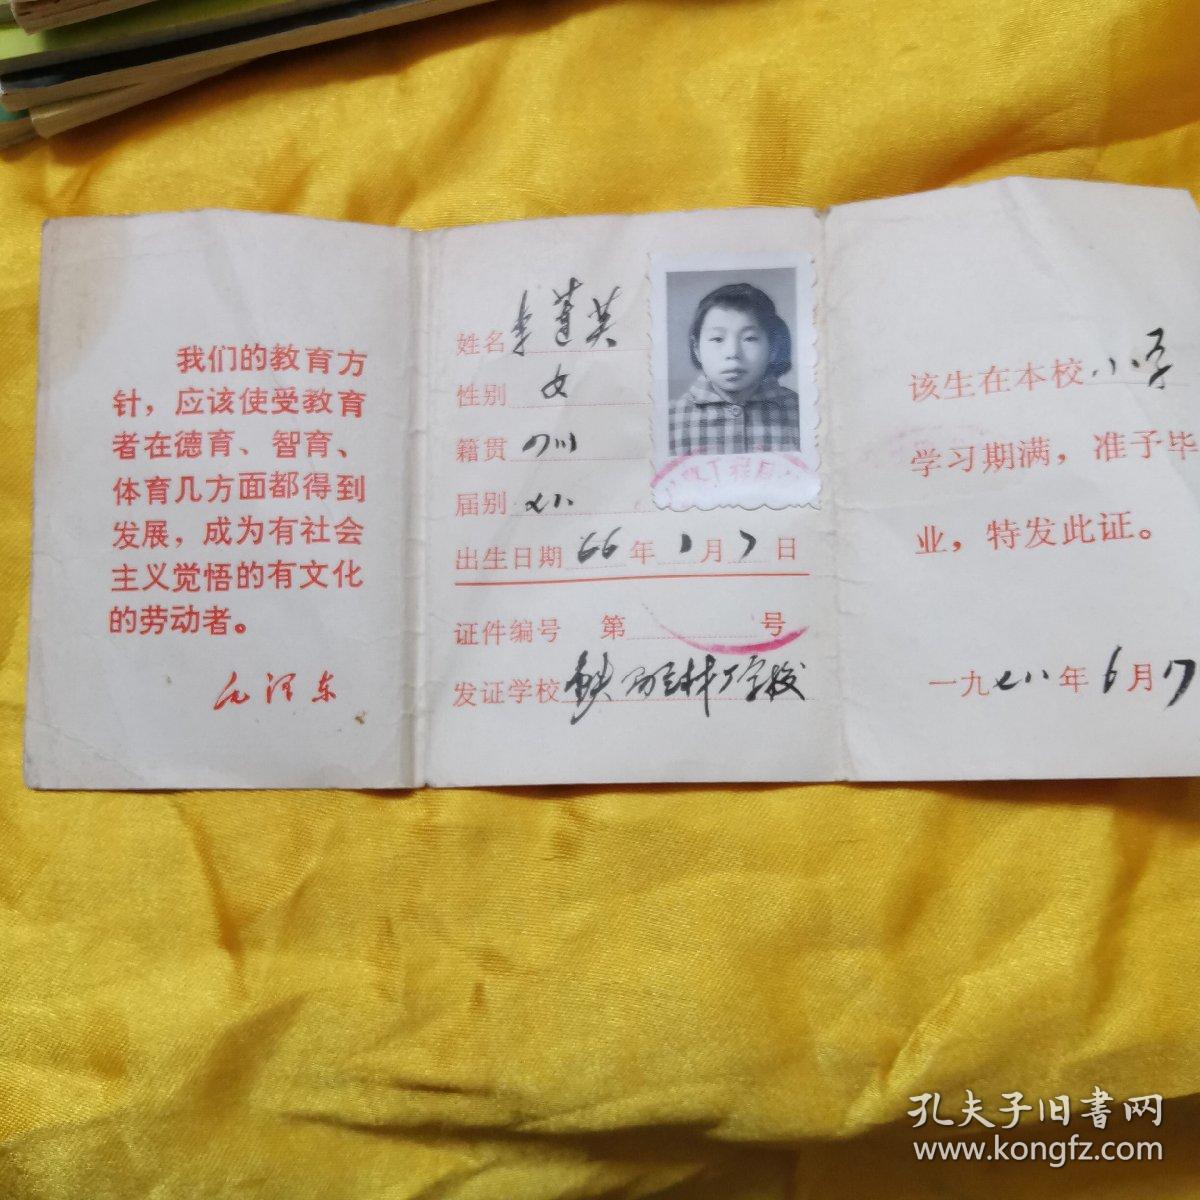 我们的教育方
针，应该使受教育
者在德育、智育、
体育几方面都得到
发展，成为有社会
主义觉悟的有文化
的劳动者。
毛泽东
姓名 李莲英
性别 女
籍贯 四川
届别 七八
出生日期 66年1月7日
证件编号 第 号
发证学校
该生在本校小学
学习期满，准予毕
业，特发此证。
一九七八年6月
孔夫子旧書网
www.kongfz.com